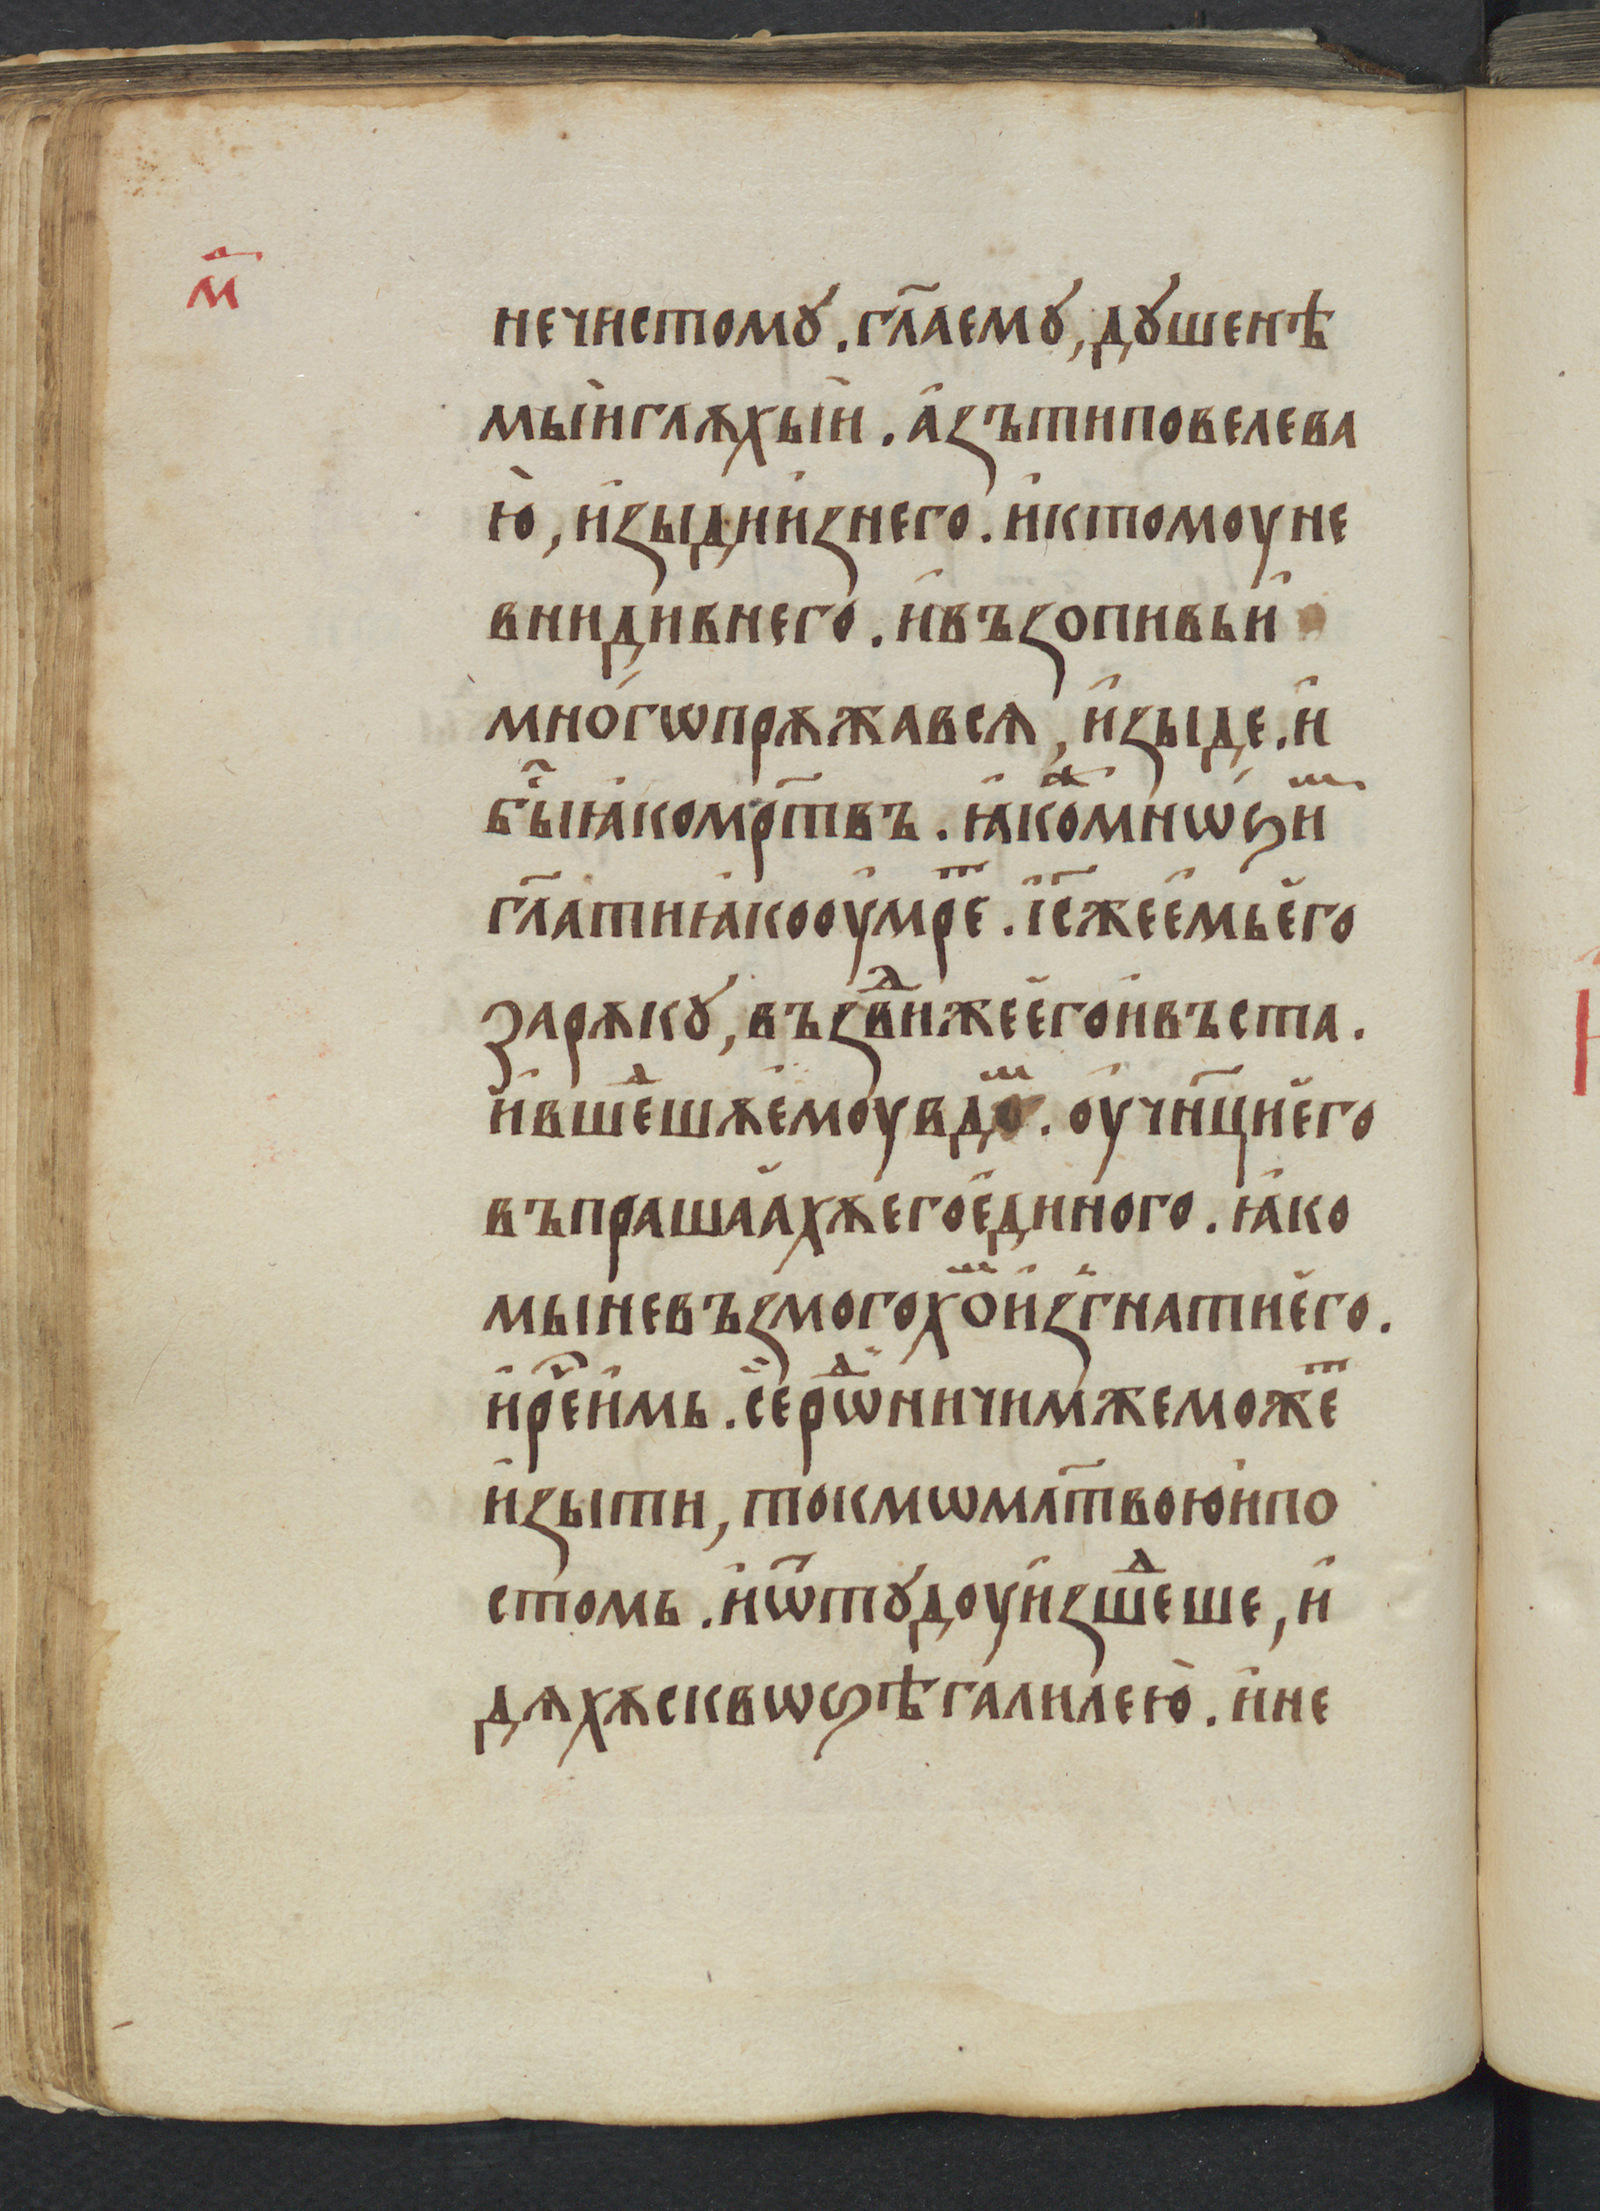 м҃а
нечистомꙋ . гл҃аемꙋ , дꙋшенѣ
мыйиглѫхый . а҆ꙁътиповелева
ю҆ , и҆ꙁыдии҆ꙁнего . и҆ктомоуне
внидивнего . и҆въꙁопивьи҆
мно́гѡпрѫжавсѧ , и҆ꙁыде . и҆
бы҇ꙗ҆комрт҃въ . ꙗ҆кож҇мнѡѕи҆ш
гл҃атиꙗ҆коо҆умрет҇ . і҆с҃жее҆мье҆го
зарѫкꙋ , въꙁвдⷣижее҆гои҆въста .
и҆вшедⷣшѫе҆моувдош҇ . о҆учн҃цие҆го
въпрашаа҆хѫегое҆диного . ꙗ҆ко
мыневъꙁмогохоⷨи҆ꙁгнатие҆го .
и҆реч҇и҆мь . се҆рѡдⷣничимжеможет҇
и҆ꙁыти , токмѡмлт҃воюи҆по
стомь . и҆ѿтꙋдоуи҆ꙁшедⷣше , и҆
дѫхѫсквѡѕѣгалилею҆ . и҆не